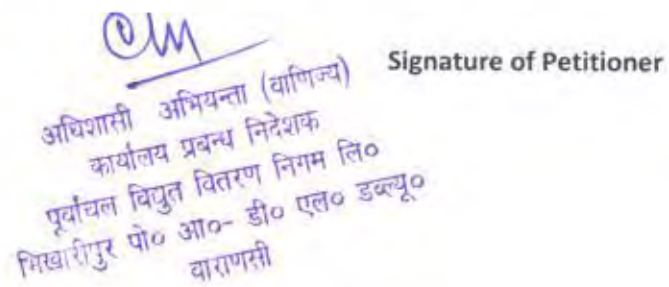 Signature of Petitioner
अधिशासी अभियन्ता (वाणिज्य)
कार्यालय प्रबन्ध निदेशक
पूर्वांचल विद्युत वितरण निगम लि०
भिखारीपुर पो० आ०- डी० एल० डब्ल्यू०
वाराणसी